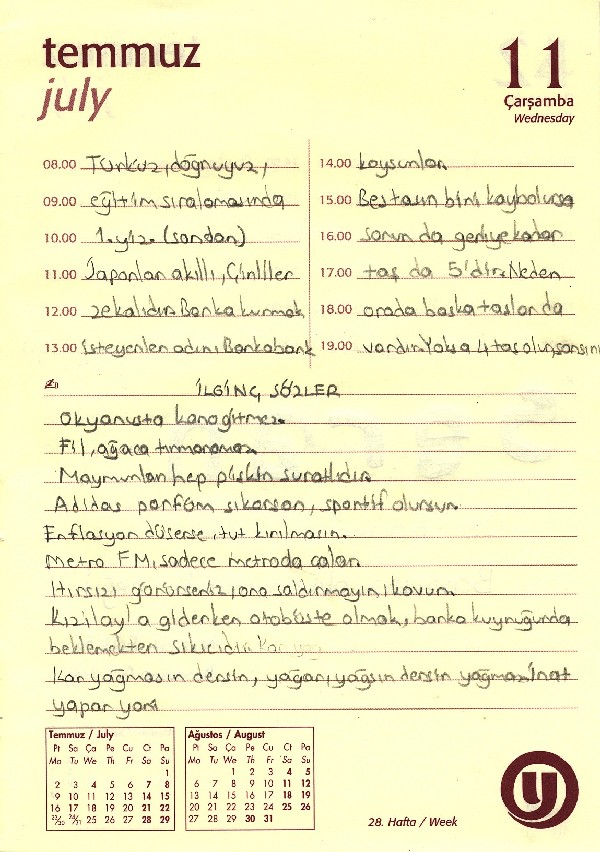 temmuz
july
11
Çarşamba
Wednesday
08.00 Türküz, doğruyuz,
09.00 eğitim sıralamasında
10.00 1.yiz. (sondan)
11.00 Japonlar akıllı, Çinliler
12.00 zekalıdır. Banka kurmak
13.00 isteyenler adını Bankabank
14.00 koysunlar.
15.00 Beş taşın biri kaybolursa
16.00 sorun da geriye kadar
17.00 taş da 5'dir. Neden
18.00 orada başka taşlar da
19.00 vardır. Yoksa 4 taş olur, sansın
İLGİNÇ SÖZLER
Okyanusta kano gitmez.
Fil, ağaca tırmanamaz.
Maymunlar hep pişkin suratlıdır.
Adidas parfüm sıkarsan, sportif olursun.
Enflasyon düşerse, tut kırılmasın.
Metro FM, sadece metroda çalar.
Hırsızı görürseniz, ona saldırmayın, kovun.
Kızılay'a giderken otobüste olmak, banka kuyruğunda
beklemekten sıkıcıdır.
Kar yağmasın dersin, yağar, yağsın dersin yağmaz. İnat
yapar yani.
Temmuz / July
Pt Sa Ça Pe Cu Ct Pa
Mo Tu We Th Fr Sa Su
1
2 3 4 5 6 7 8
9 10 11 12 13 14 15
16 17 18 19 20 21 22
23/30 24/31 25 26 27 28 29
Ağustos / August
Pt Sa Ça Pe Cu Ct Pa
Mo Tu We Th Fr Sa Su
1 2 3 4 5
6 7 8 9 10 11 12
13 14 15 16 17 18 19
20 21 22 23 24 25 26
27 28 29 30 31
28. Hafta / Week